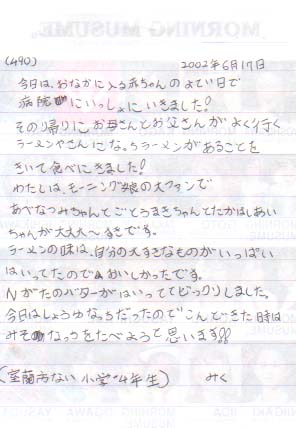 MORNING MUSUME。
(490) 2002年6月17日
今日は、おなかに入る赤ちゃんのよてい日で
病院にいっしょにいきました!
その帰りにお母さんとお父さんがよく行く
ラーメンやさんになっちラーメンがあることを
きいて食べにきました!
わたしは、モーニング娘の大ファンで
あべなつみちゃんとごとうまきちゃんとたかはしあい
ちゃんが大大大〜すきです。
ラーメンの味は、自分の大すきなものがいっぱい
はいってたのでおいしかったです。
Nがたのバターがはいっててビックリしました。
今日はしょうゆなっちだったのでこんできた時は
みそなっちをたべようと思います!!
(室蘭市ない小学4年生) みく
NIIGAKI IIDA MORNING OGAWA YASUDA